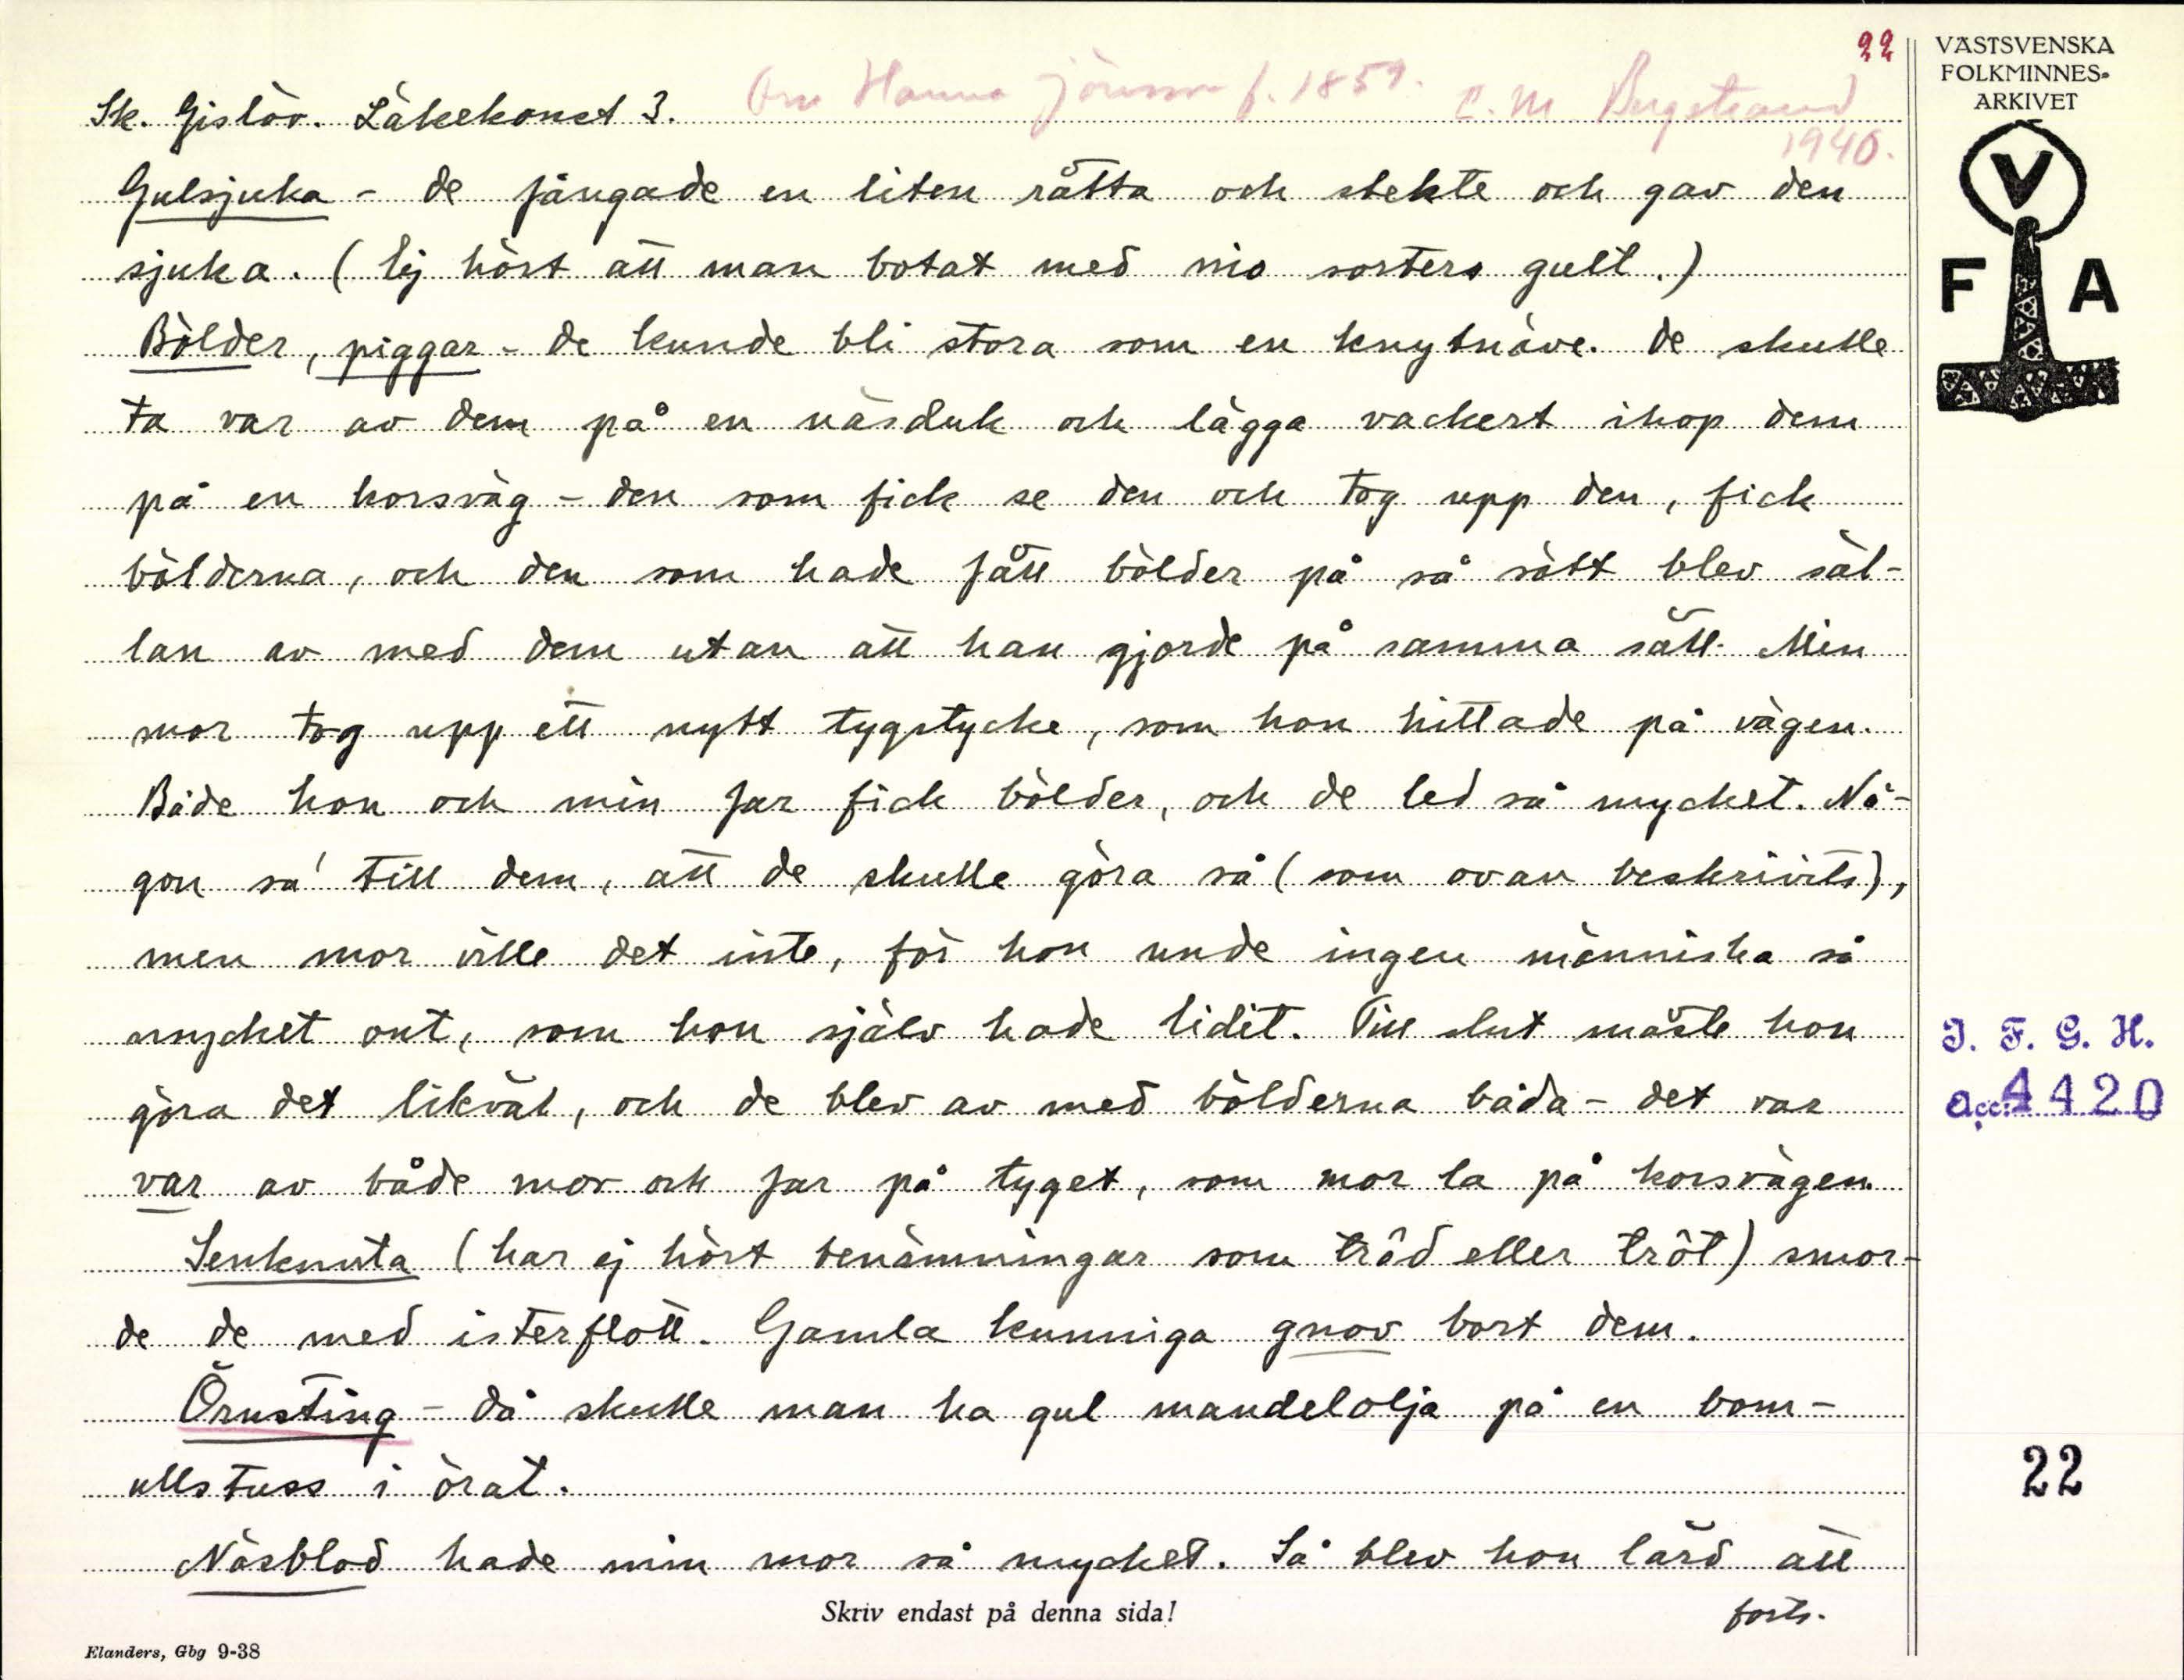 22
VÄSTSVENSKA
FOLKMINNES-
ARKIVET
Sk. Gislöv. Läkekonst 3. Hanna Jönsson f. 1859. C. M. Bergstrand
1940.
V
F A
Gulsjuka - de fångade en liten råtta och stekte och gav den
sjuka. (Ej hört att man botat med nio sorters gult.)
Bölder, piggar - de kunde bli stora som en knytnäve. De skulle
ta var av dem på en näsduk och lägga vackert ihop dem
på en korsväg - den som fick se den och tog upp den, fick
bölderna, och den som hade fått bölder på så sätt blev säl-
lan av med dem utan att han gjorde på samma sätt. Min
mor tog upp ett nytt tygstycke, som hon hittade på vägen.
Både hon och min far fick bölder, och de led så mycket. Nå-
gon sa' till dem, att de skulle göra så (som ovan beskrivits),
men mor ville det inte, för hon unde ingen människa så
mycket ont, som hon själv hade lidit. Till slut måste hon
göra det likväl, och de blev av med bölderna båda - det var
var av både mor och far på tyget, som mor la på korsvägen.
Senknuta (har ej hört benämningar som tråd eller tröt) smor-
de de med isterflott. Gamla kunniga gnov bort dem.
Örnsting - då skulle man ha gul mandelolja på en bom-
ullstuss i örat.
Näsblod hade min mor så mycket. Så blev hon lärd att
forts.
I. F. G. H.
acc. 4420
22
Skriv endast på denna sida!
Elanders, Gbg 9-38